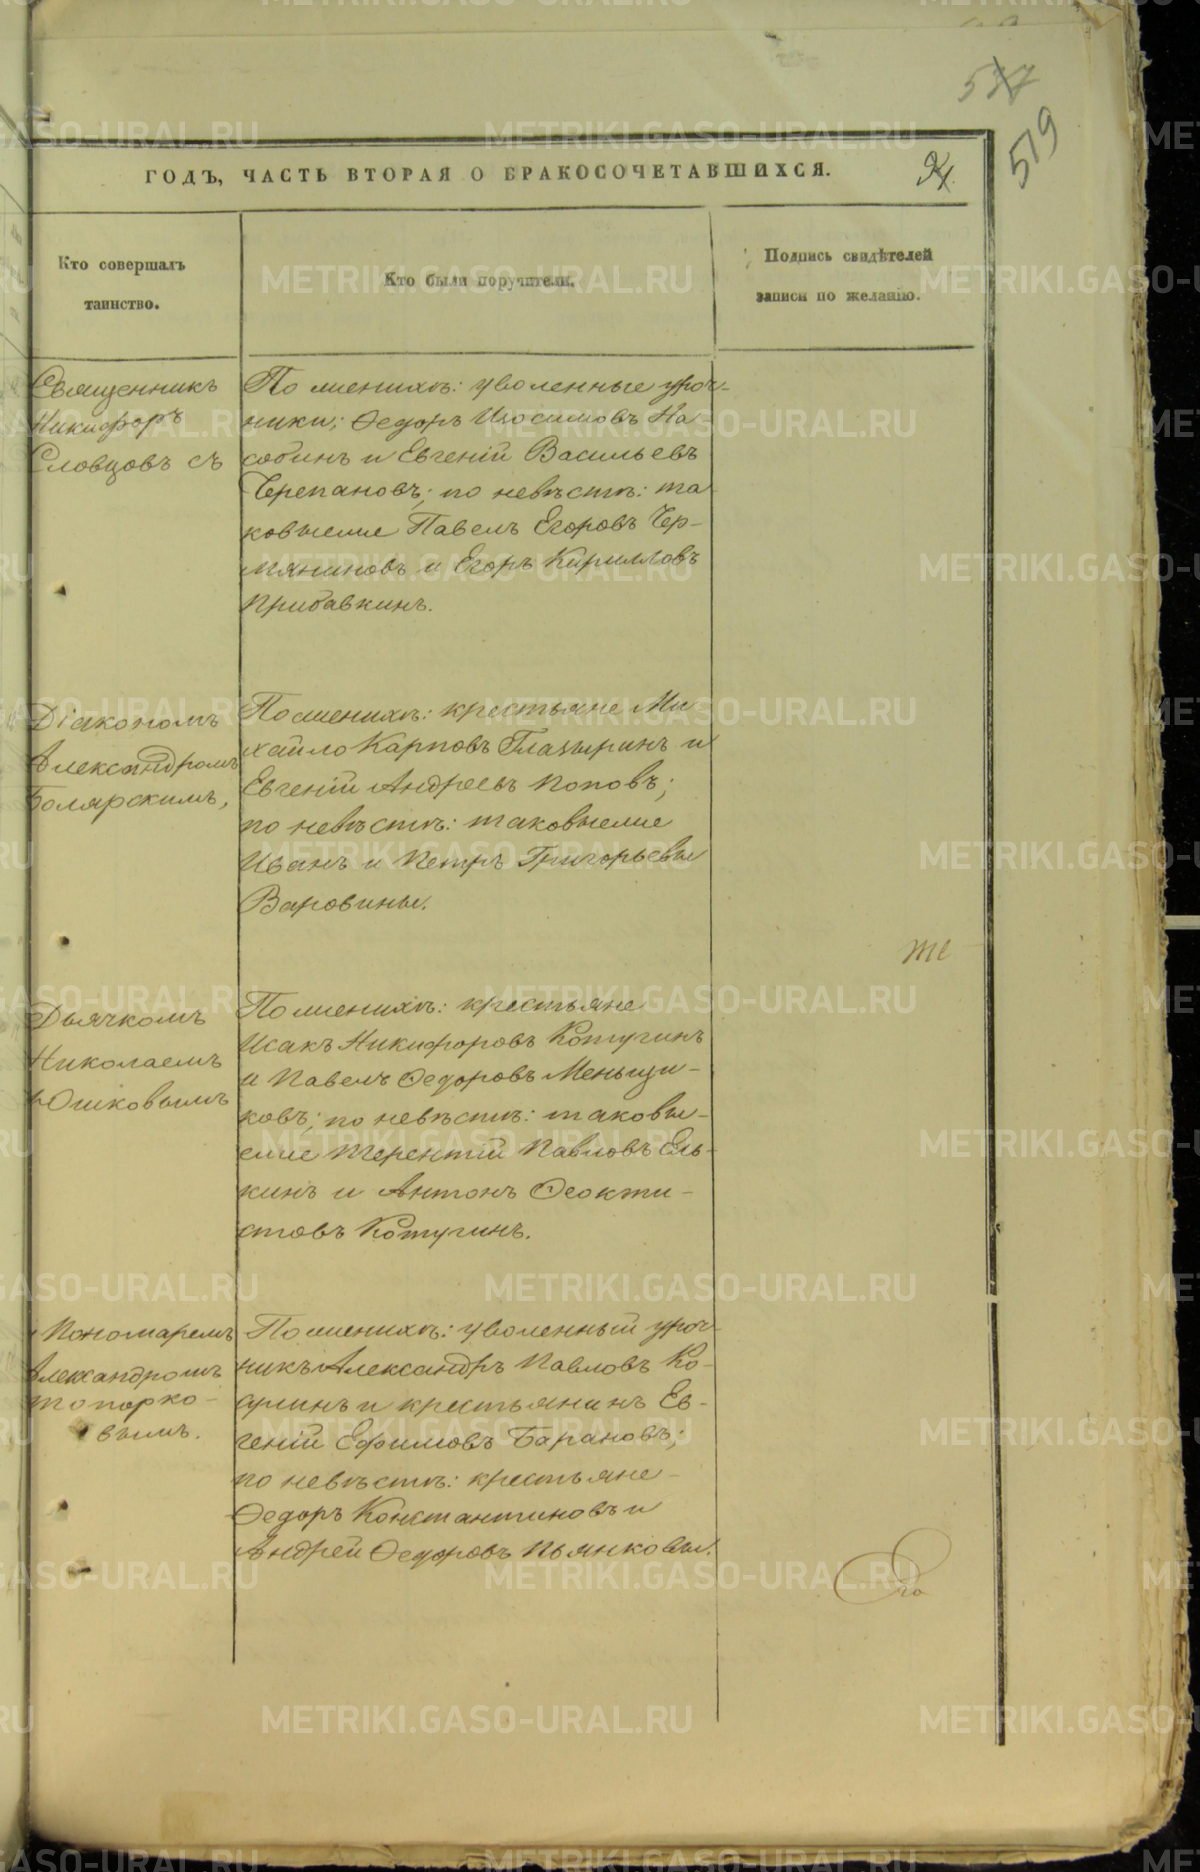 537
519
ГОДЪ, ЧАСТЬ ВТОРАЯ О БРАКОСОЧЕТАВШИХСЯ.
Кто совершалъ
таинство.
Кто были поручители.
Подпись свидѣтелей
записи по желанію.
Священникъ
Никифоръ
Словцовъ съ
По женихѣ: уволенные уроч-
ники; Ѳедоръ Изосимовъ На
собинъ и Евгеній Васильевъ
Черепановъ; по невѣстѣ: та
ковыеже Павелъ Егоровъ Чер-
мяниновъ и Егоръ Кирилловъ
Прибавкинъ.
Діакономъ
Александромъ
Болярскимъ,
По женихѣ: крестьяне Ми
хайло Карповъ Глазыринъ и
Евгеній Андреевъ Поповъ;
по невѣстѣ: таковыеже
Иванъ и Петръ Григорьевы
Варовины.
Дьячкомъ
Николаемъ
Юшковымъ
По женихѣ: крестьяне
Исакъ Никифоровъ Котугинъ
и Павелъ Ѳедоровъ Меньщи-
ковъ; по невѣстѣ: таковы-
еже Терентій Павловъ Ель-
кинъ и Антонъ Ѳеокти-
стовъ Котугинъ.
Пономаремъ
Александромъ
Топорко-
вымъ.
По женихѣ: уволенный уроч-
никъ Александръ Павловъ Ко-
и крестьянинъ Ев-
геній Ефимовъ Барановъ;
по невѣстѣ: крестьяне
Ѳедоръ Константиновъ и
Андрей Ѳедоровъ Пьянковы.
те
METRIKI.GASO-URAL.RU